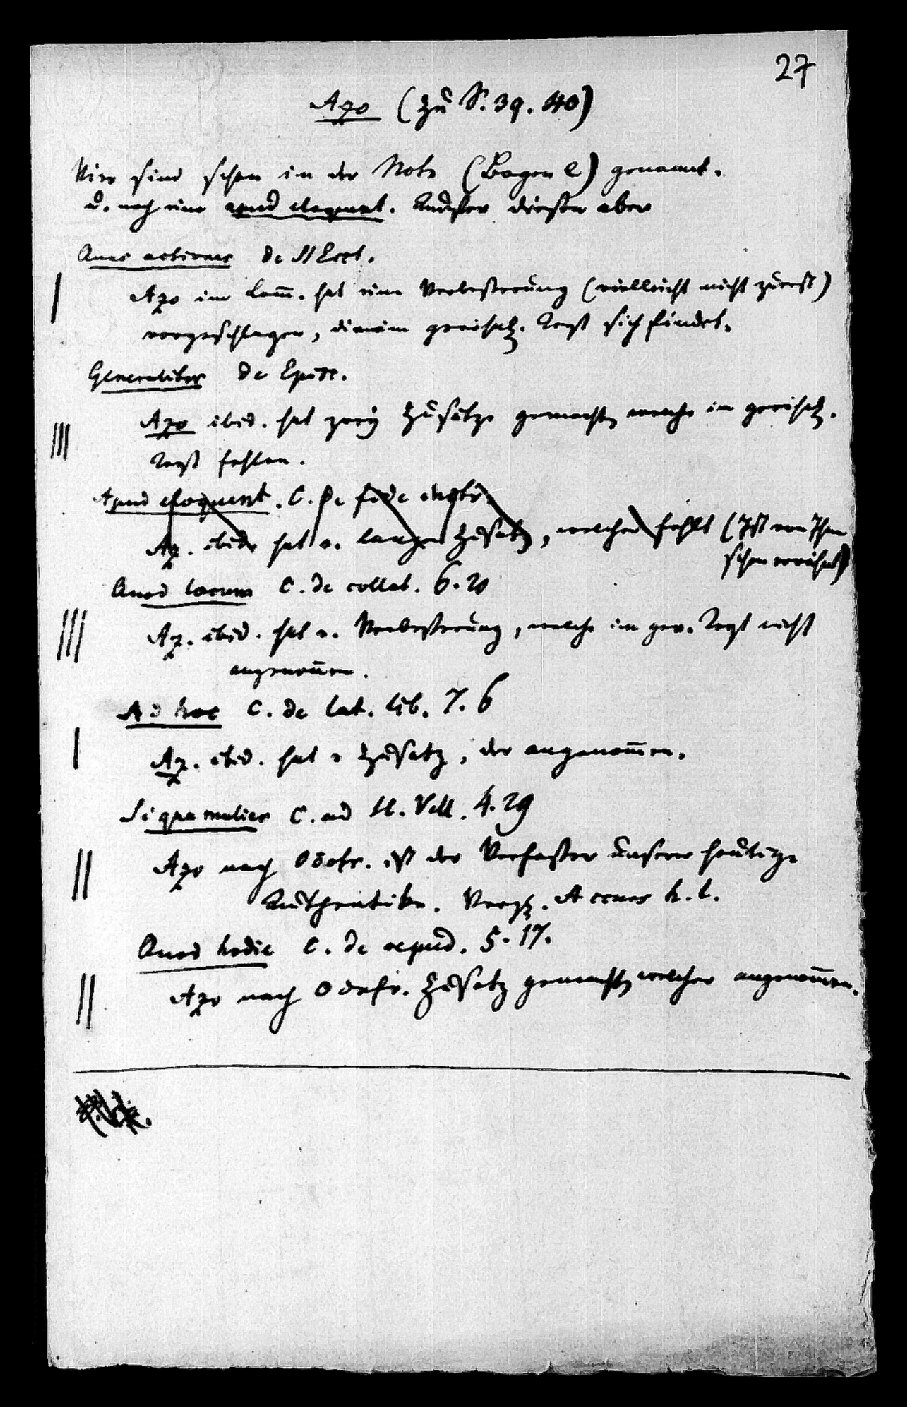 27
Azo (zu S. 39. 40)
Vier sind schon in der Note (Bogen e) genannt.
u. noch eine apud eloquent. Außer diesen aber
Quas actiones de SS Eccl.
Azo im Com. hat eine Verbesserung (vielleicht nicht zuerst)
vorgeschlagen, die im gewöhnl. Text sich findet.
Generaliter de Episc.
Azo ibid. hat zwey Zusätze gemacht, welche im gewöhnl.
Text fehlen.
Apud eloquent. C. de fide instr.
Az. ibid. hat e. langen Zusatz, welcher fehlt (Ist von
schon erwähnt)
Quod locum C. de collat. 6. 20
Az. ibid. hat e. Verbesserung, welche im gew. Text nicht
angenom̅en.
Ad hoc C. de lat. lib. 7. 6
Az. ibid. hat e Zusatz, der angenom̅en.
Si qua mulier C. ad SC. Vell. 4. 29
Azo nach Odofr. ist der Verfasser unserer heutigen
Authentike. Vergl. Accurs h. l.
Quod hodie C. de repud. 5. 17.
Azo nach Odofr. Zusatz gemacht, welcher angenom̅en.